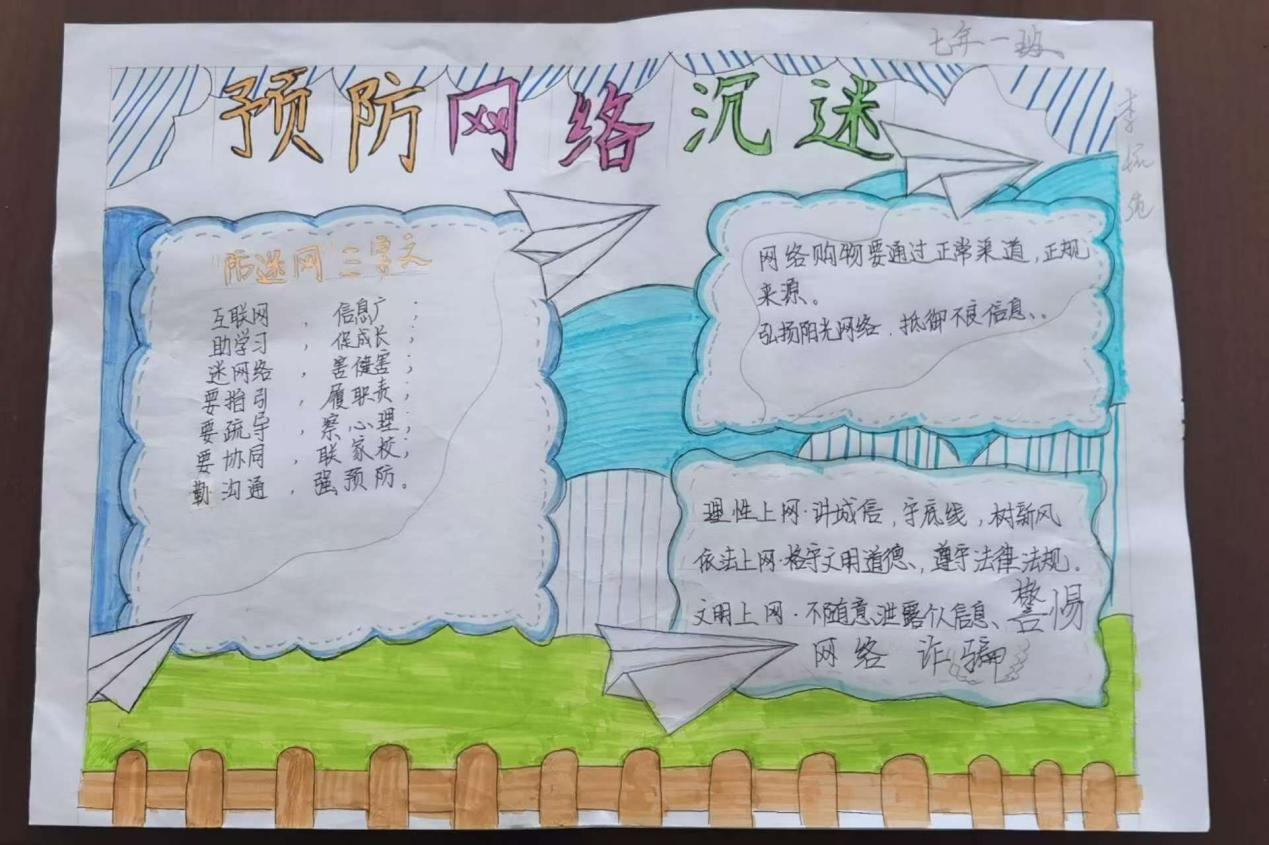 七年一班
预防网络沉迷
李
防迷网三字文
互联网，信息广；
助学习，促成长；
迷网络，害健害；
要指引，履职责；
要疏导，察心理；
要协同，联家校；
勤沟通，强预防。
网络购物要通过正常渠道，正规
来源。
弘扬阳光网络，抵御不良信息、。
理性上网·讲城信，守底线，树新风
依法上网·格守文明道德、，遵守法律法规。
文明上网·不随意泄露个人信息、警惕
网络诈骗